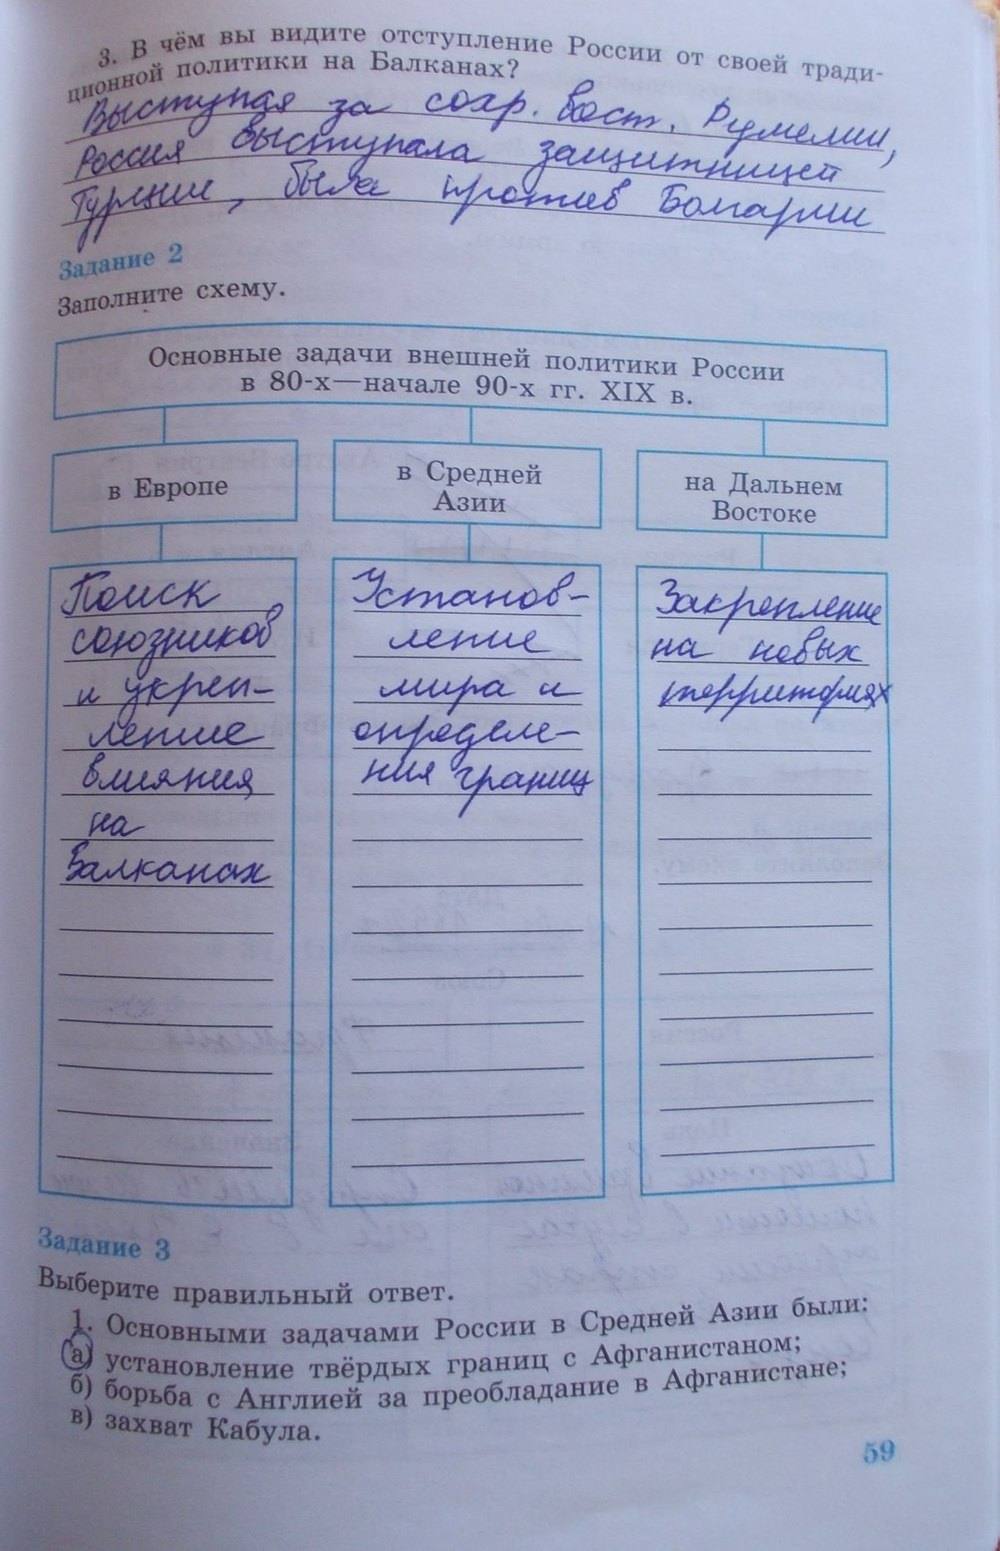 3. В чём вы видите отступление России от своей тради-
ционной политики на Балканах?
Выступая за сохр. Вост. Румелии,
Россия выступала защитницей
Турции, была против Болгарии
Задание 2
Заполните схему.
Основные задачи внешней политики России
в 80-х—начале 90-х гг. XIX в.
в Европе
Поиск
союзников
и укреп-
ление
влияния
на
Балканах
в Средней
Азии
Установ-
ление
мира и
определе-
ния границ
на Дальнем
Востоке
Закрепление
на новых
территориях
Задание 3
Выберите правильный ответ.
1. Основными задачами России в Средней Азии были:
а) установление твёрдых границ с Афганистаном;
б) борьба с Англией за преобладание в Афганистане;
в) захват Кабула.
59